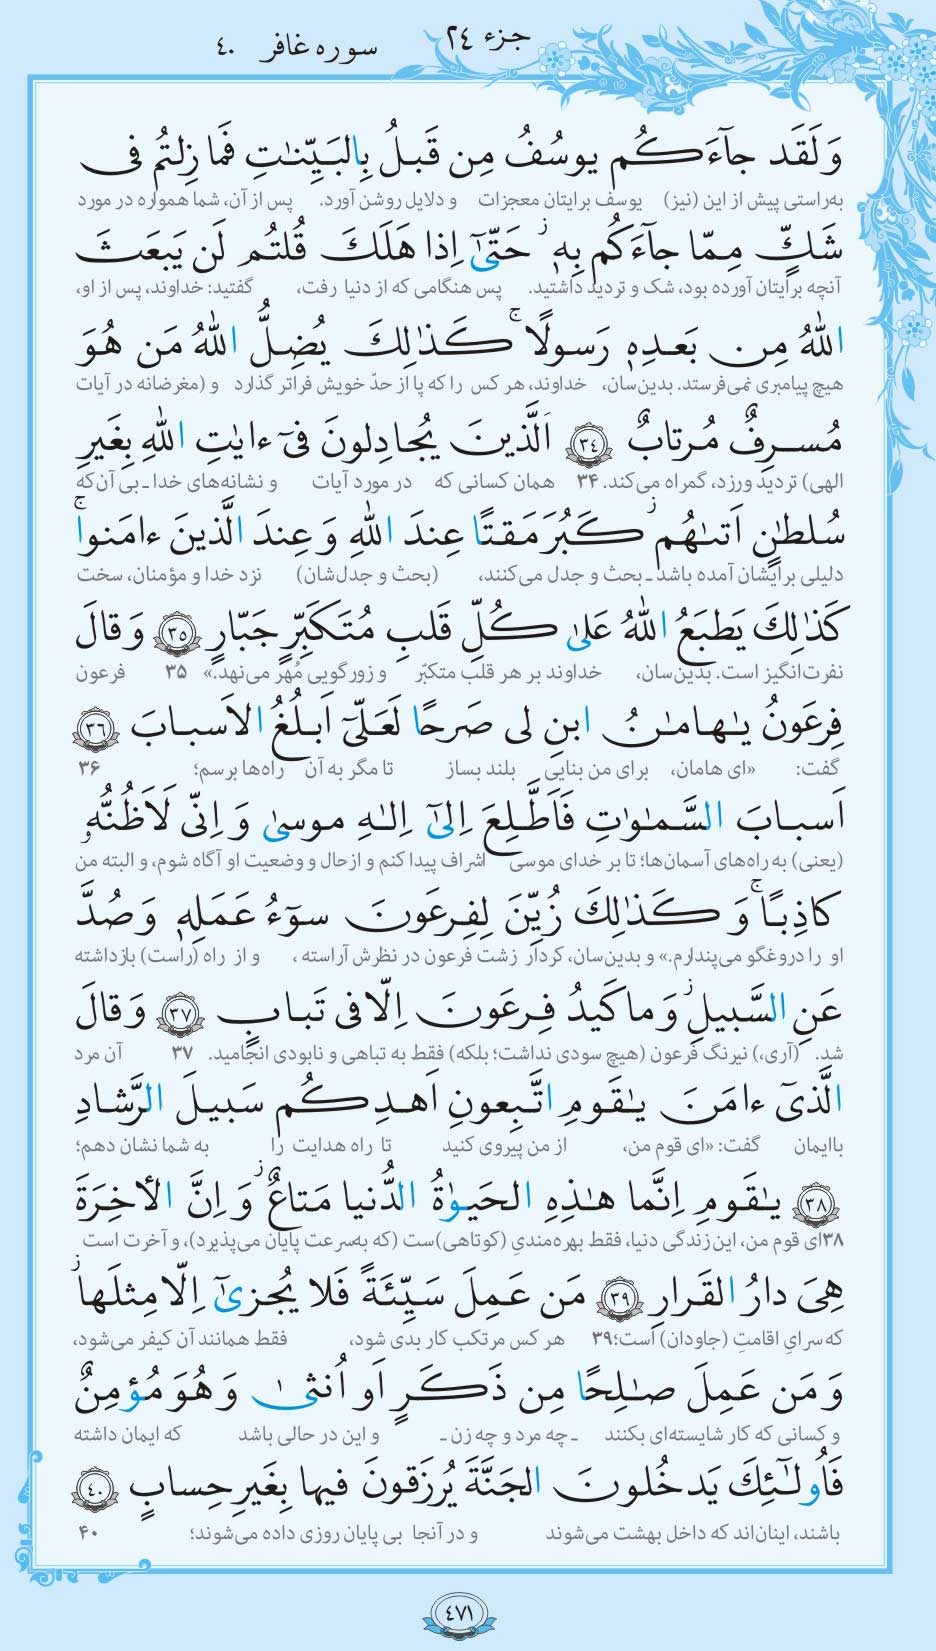 جزء ۲۴ سوره غافر ۴۰
وَ لَقَد جآءَکُم یوسُفُ مِن قَبلُ بِالبَیِّنٰتِ فَما زِلتُم فی
به‌راستی پیش از این (نیز) یوسف برایتان معجزات و دلایل روشن آورد. پس از آن، شما همواره در مورد
شَکٍّ مِمّا جآءَکُم بِهٖ ۖ حَتّیٰٓ اِذا هَلَکَ قُلتُم لَن یَبعَثَ
آنچه برایتان آورده بود، شک و تردید داشتید. پس هنگامی که از دنیا رفت، گفتید: خداوند، پس از او،
اللّٰهُ مِن بَعدِهٖ رَسولًا ۚ کَذٰلِکَ یُضِلُّ اللّٰهُ مَن هُوَ
هیچ پیامبری نمی‌فرستد. بدین‌سان، خداوند، هر کس را که پا از حدّ خویش فراتر گذارد و (مغرضانه در آیات
مُسرِفٌ مُرتابٌ ﴿۳۴﴾ اَلَّذینَ یُجادِلونَ فیٓ ءایٰتِ اللّٰهِ بِغَیرِ
الهی) تردید ورزد، گمراه می‌کند. ۳۴ همان کسانی که در مورد آیات و نشانه‌های خدا ـ بی آن‌که
سُلطٰنٍ اَتىٰهُم ۖ کَبُرَ مَقتًا عِندَ اللّٰهِ وَ عِندَ الَّذینَ ءامَنوا ۚ
دلیلی برایشان آمده باشد ـ بحث و جدل می‌کنند، (بحث و جدل‌شان) نزد خدا و مؤمنان، سخت
کَذٰلِکَ یَطبَعُ اللّٰهُ عَلیٰ کُلِّ قَلبِ مُتَکَبِّرٍ جَبّارٍ ﴿۳۵﴾ وَ قالَ
نفرت‌انگیز است. بدین‌سان، خداوند بر هر قلب متکبّر و زورگویی مُهر می‌نهد.» ۳۵ فرعون
فِرعَونُ یٰهامٰنُ ابنِ لی صَرحًا لَعَلّیٓ اَبلُغُ الاَسبابَ ﴿۳۶﴾
گفت: «ای هامان، برای من بنایی بلند بساز تا مگر به آن راه‌ها برسم؛ ۳۶
اَسبابَ السَّمٰوٰتِ فَاَطَّلِعَ اِلیٰٓ اِلٰهِ موسیٰ وَ اِنّی لَاَظُنُّهٗ
(یعنی) به راه‌های آسمان‌ها؛ تا بر خدای موسی اشراف پیدا کنم و از حال و وضعیت او آگاه شوم، و البته من
کاذِبًا ۚ وَ کَذٰلِکَ زُیِّنَ لِفِرعَونَ سوٓءُ عَمَلِهٖ وَ صُدَّ
او را دروغگو می‌پندارم.» و بدین‌سان، کردار زشت فرعون در نظرش آراسته ، و از راه (راست) بازداشته
عَنِ السَّبیلِ ۖ وَ ما کَیدُ فِرعَونَ اِلّا فی تَبابٍ ﴿۳۷﴾ وَ قالَ
شد. (آری،) نیرنگ فرعون (هیچ سودی نداشت؛ بلکه) فقط به تباهی و نابودی انجامید. ۳۷ آن مرد
الَّذیٓ ءامَنَ یٰقَومِ اتَّبِعونِ اَهدِکُم سَبیلَ الرَّشادِ
باایمان گفت: «ای قوم من، از من پیروی کنید تا راه هدایت را به شما نشان دهم؛
﴿۳۸﴾ یٰقَومِ اِنَّما هٰذِهِ الحَیوٰةُ الدُّنیا مَتاعٌ ۖ وَ اِنَّ الأخِرَةَ
۳۸ ای قوم من، این زندگی دنیا، فقط بهره‌مندیِ (کوتاهی)ست (که به‌سرعت پایان می‌پذیرد)، و آخرت است
هِیَ دارُ القَرارِ ﴿۳۹﴾ مَن عَمِلَ سَیِّئَةً فَلا یُجزیٰٓ اِلّا مِثلَها ۖ
که سرایِ اقامتِ (جاودان) است؛ ۳۹ هر کس مرتکب کار بدی شود، فقط همانند آن کیفر می‌شود،
وَ مَن عَمِلَ صٰلِحًا مِن ذَکَرٍ اَو اُنثیٰ وَ هُوَ مُؤمِنٌ
و کسانی که کار شایسته‌ای بکنند ـ چه مرد و چه زن ـ و این در حالی باشد که ایمان داشته
فَاُولٰٓئِکَ یَدخُلونَ الجَنَّةَ یُرزَقونَ فیها بِغَیرِ حِسابٍ ﴿۴۰﴾
باشند، اینان‌اند که داخل بهشت می‌شوند و در آنجا بی پایان روزی داده می‌شوند؛ ۴۰
۴۷۱